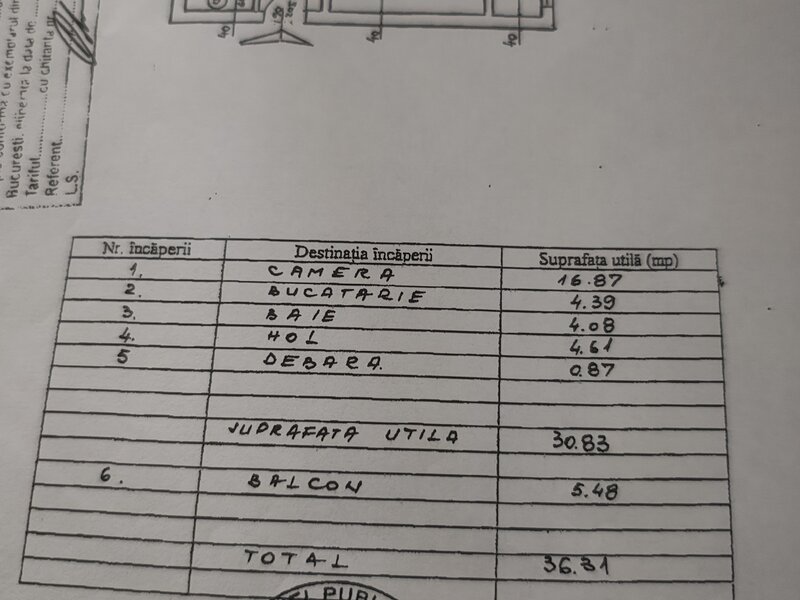 București,
Tariful..........cu chitanța nr
Referent
L.S.
40
1.90
40
40
Nr. încăperii Destinația încăperii Suprafața utilă (mp)
1. CAMERA 16.87
2. BUCATARIE 4.39
3. BAIE 4.08
4. HOL 4.61
5 DEBARA. 0.87
SUPRAFATA UTILA 30.83
6. BALCON 5.48
TOTAL 36.31